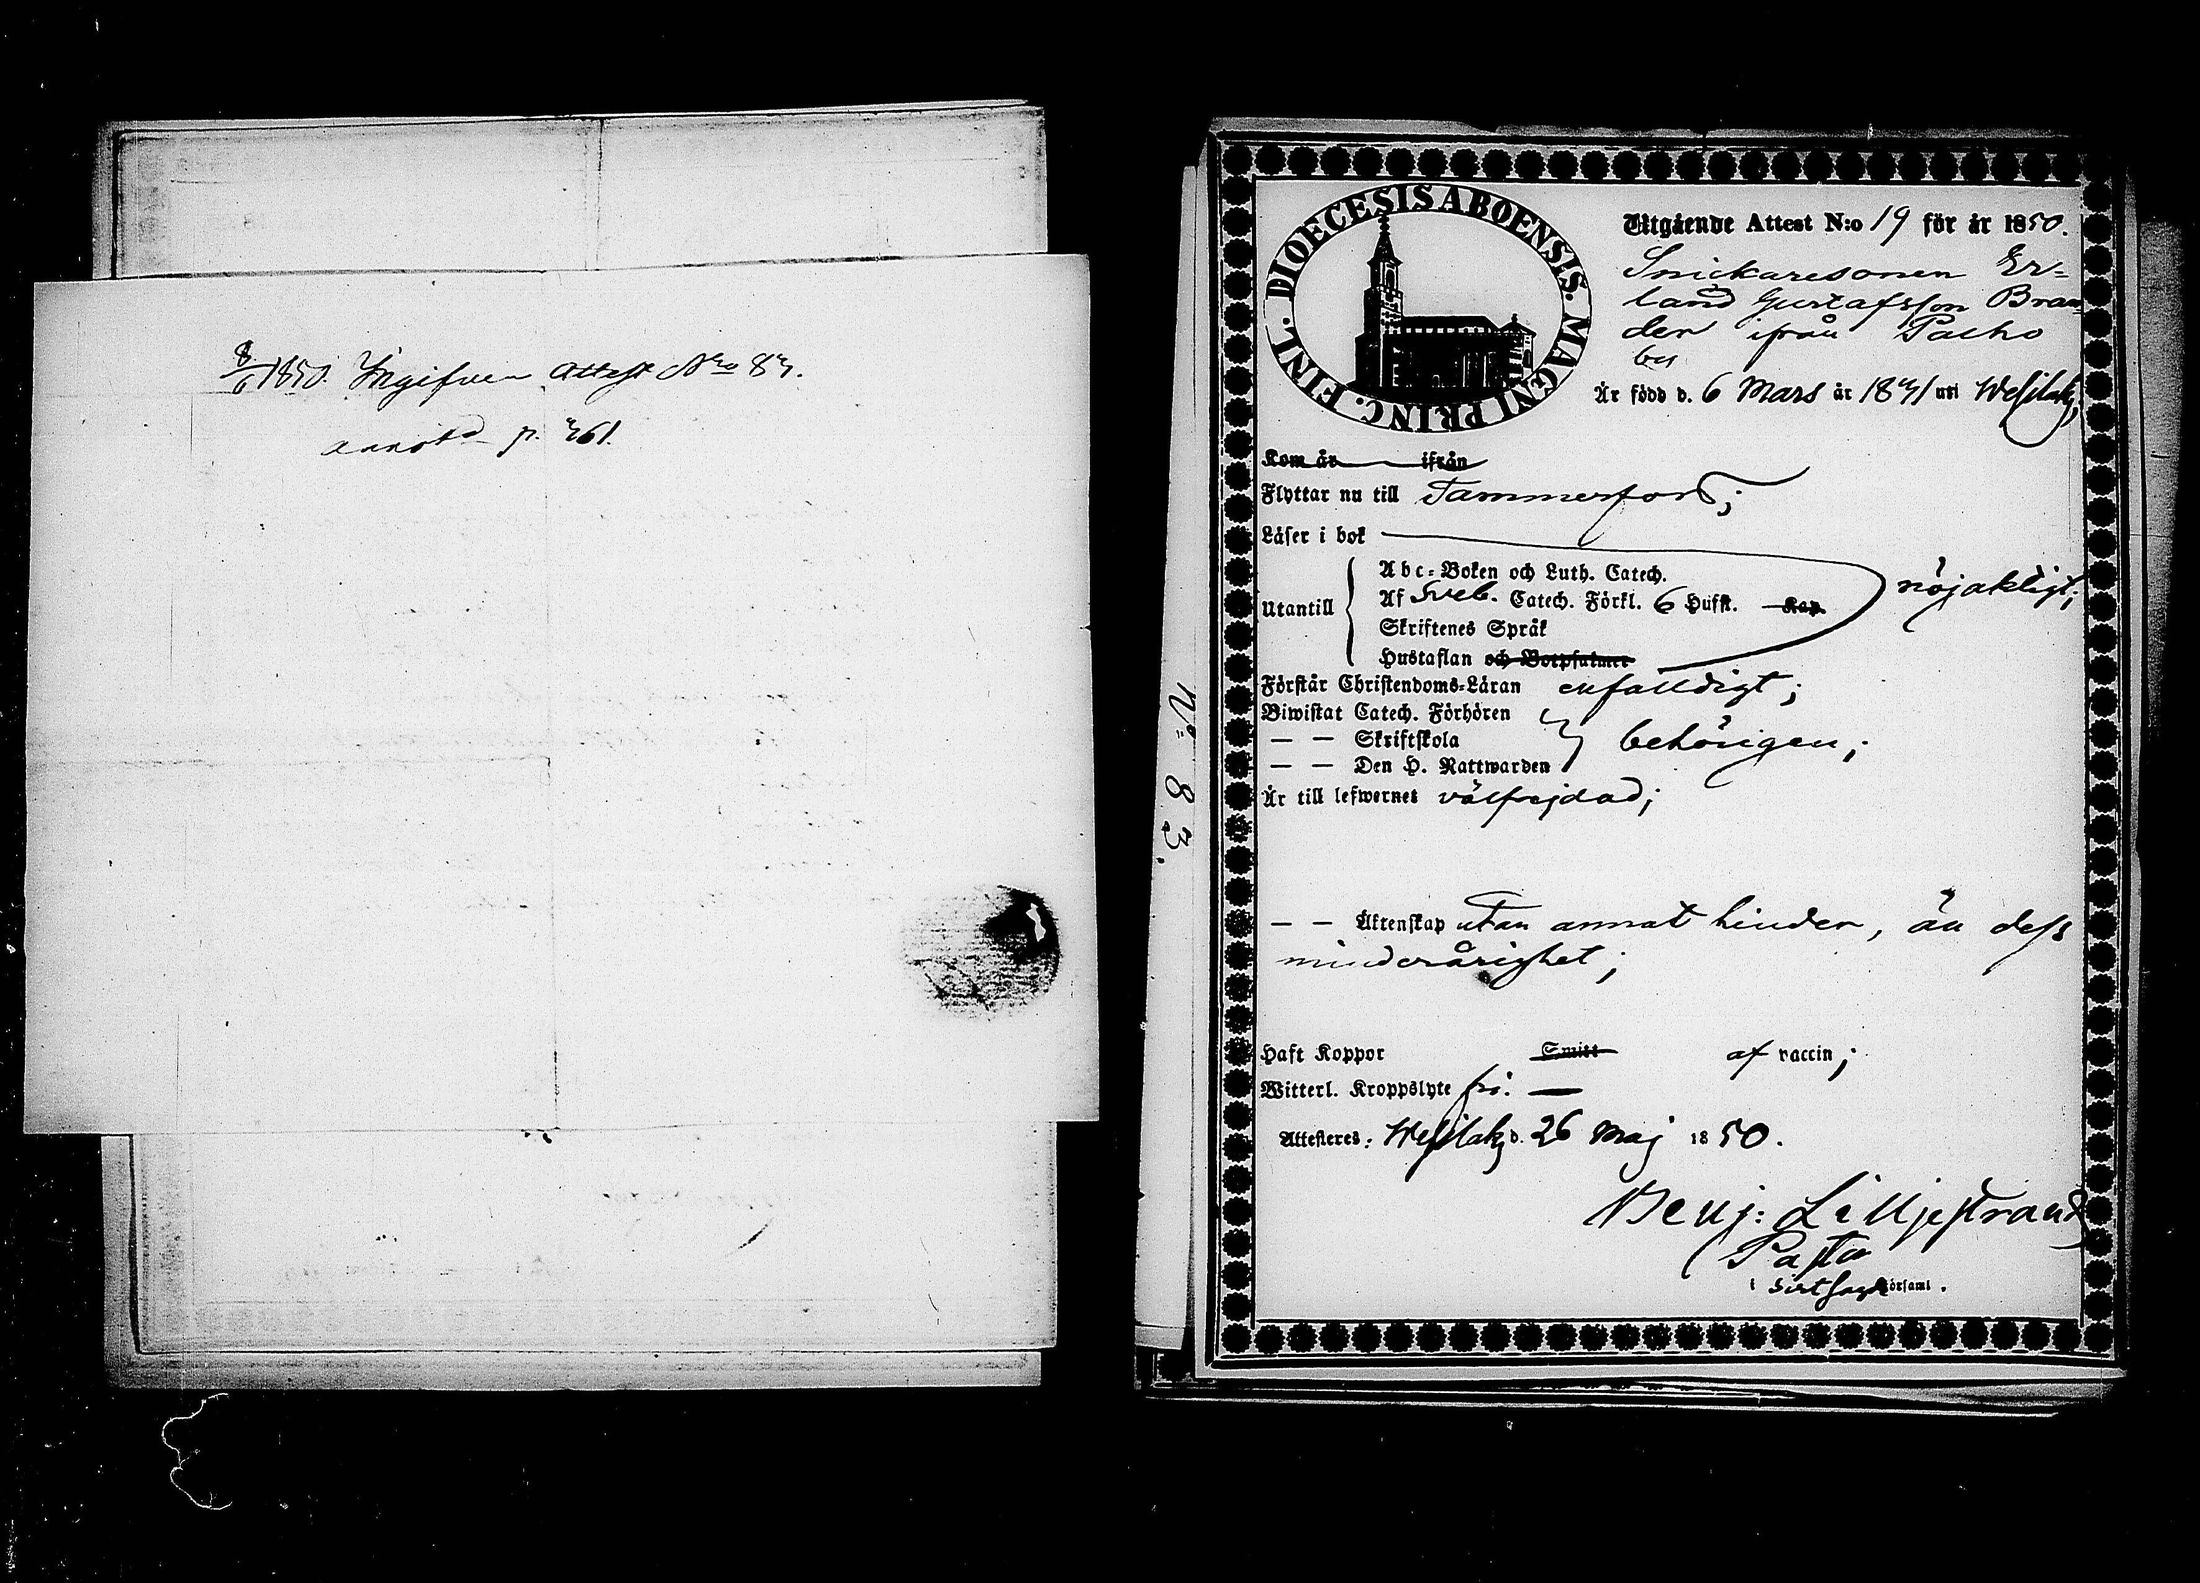 8/6 1850. Ingifven Attest Nro 83.
annotd p. 361.
N° 83.
DIOECESIS ABOENSIS. MAGNI PRINC. FINL.
Utgående Attest N:o 19 för år 1850.
Snickaresonen Er=
land Gustafsson Bran=
der ifrån Palho
by
Är född d. 6 Mars år 1831 uti Wesilaks,
Kom år ifrån
Flyttar nu till Tammerfors;
Läser i bok
Abc=Boken och Luth. Catech.
Utantill Af Sveb. Catech. Förkl. 6 Hufst. Kap. nöjaktigt;
Skriftenes Språk
Hustaflan och Botpsalmer
Förstår Christendoms=Läran enfalldigt;
Biwistat Catech. Förhören
— — Skriftskola behörigen;
— — Den H. Nattwarden
Är till lefwernet välfrejdad;
— — Äktenskap utan annat hinder, än dess
minderårighet;
Haft Koppor Smitt af vaccin;
Witterl. Kroppslyte fri. —
Attesteres: Wesilaks d. 26 Maj 1850.
Benj: Lilljestrand
Pastor
i församl.